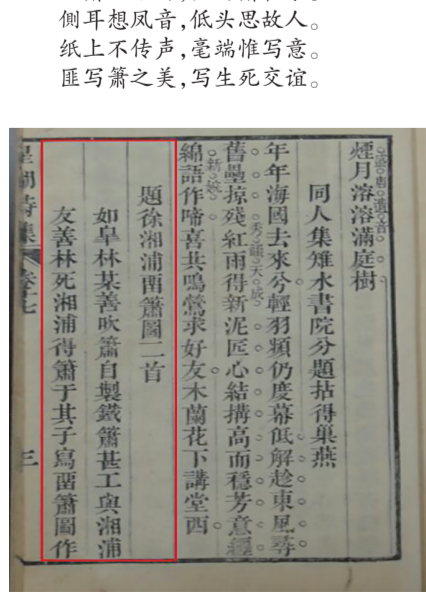 側耳想凤音,低头思故人。
纸上不传声,毫端惟写意。
匪写箫之美,写生死交谊。
盛唐遺音
煙月溶溶滿庭樹
同人集雉水書院分題拈得巢燕
秀韻天成
年年海國去來分輕羽頻仍度幕低解趁東風尋
舊壘掠殘紅雨得新泥匠心結搆高而穩芳意纏
新婉
綿語作啼喜共鳴鶯求好友木蘭花下講堂西
題徐湘浦畱簫圖二首
如臯林某善吹簫自製鐵簫甚工與湘浦
友善林死湘浦得簫于其子寫畱簫圖作
湖詩集 卷十七 三